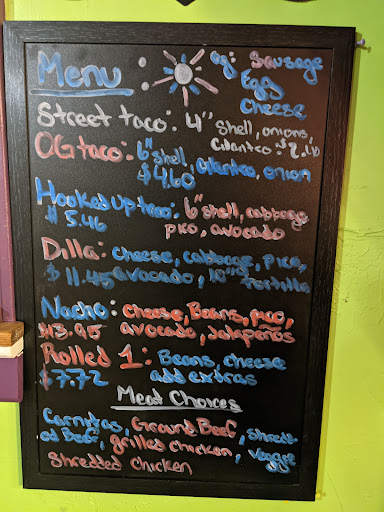 Menu
eg: Sausage
Egg
Cheese
Street taco: 4" shell, onions,
Cilantro: $2.10
OG taco: 6" shell, cilantro, onion
$4.60
Hooked Up taco: 6" shell, cabbage
$5.46 pico, avocado
Dilla: cheese, cabbage, pico,
$11.45 avocado, 10" tortilla
Nacho: cheese, Beans, pico,
$13.95 avocado, Jalapeños
Rolled 1: Beans cheese
$7.72 add extras
Meat Choices
Carnitas, Ground Beef, Shredd
ed Beef, grilled chicken, Veggie
Shredded Chicken